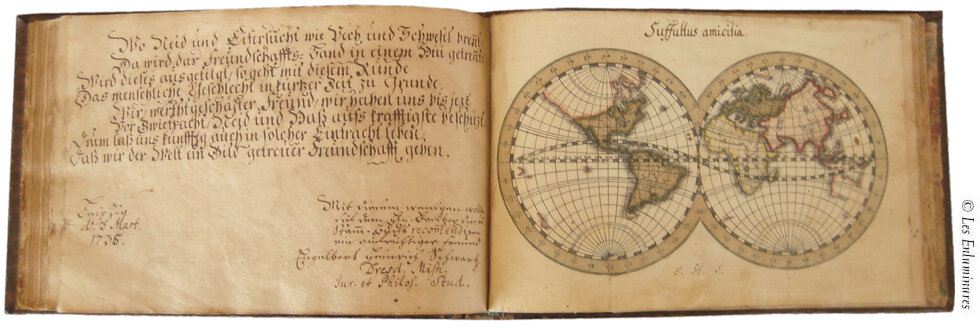 Wo Neid und Eifersucht wie Pech und Schwefel brent
Da wird das Freundschaffts-Band in einem Hui getrent
Wird dieses ausgetilgt, so geht mit diesem Runde
Das menschliche Geschlecht in kurtzer Zeit zu Grunde.
Wir, werthgeschätzter Freund, wir haben uns bis jezt
Vor Zwietracht, Neid und Haß aufs kräfftigste beschüzt.
Drum laß uns künfftig auch in solcher Eintracht leben,
Daß wir der Welt ein Bild getreuer Freundschafft geben.
Leipzig
d. 3 Mart.
1736.
Mit diesem wenigen
recomendiren
ein aufrichtiger Freund
Engelbert Heinrich Schwartz
Dresd. Misn.
Jur. et Philos. Stud.
Suffultus amicitia.
E. H. S.
© Les Enluminures